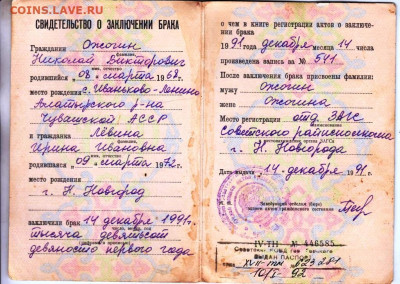 COINS.LAVE.RU
СВИДЕТЕЛЬСТВО О ЗАКЛЮЧЕНИИ БРАКА
Гражданин Ожогин
фамилия,
Николай Викторович
имя, отчество
родившийся „08" марта 1968
место рождения с. Иваньково-Ленино
Алатырского р-на
Чувашской АССР
и гражданка Лёвина
фамилия,
Ирина Ивановна
имя, отчество
родившаяся „09" марта 1972
место рождения
г. Н. Новгород
заключили брак 14 декабря 1991
тысяча девятьсот
девяносто первого года
о чем в книге регистрации актов о заключении брака
1991 года декабря месяца 14 числа
произведена запись за № 541
После заключения брака присвоены фамилии:
мужу Ожогин
жене Ожогина
Место регистрации отд. ЗАГС
Советского райисполкома
г. Н. Новгорода
Дата выдачи „14" декабря 1991 г.
Заведующий отделом (бюро)
записи актов гражданского состояния
IV-ТН № 446585
ВЫДАН ПАСПОРТ
10/I 92